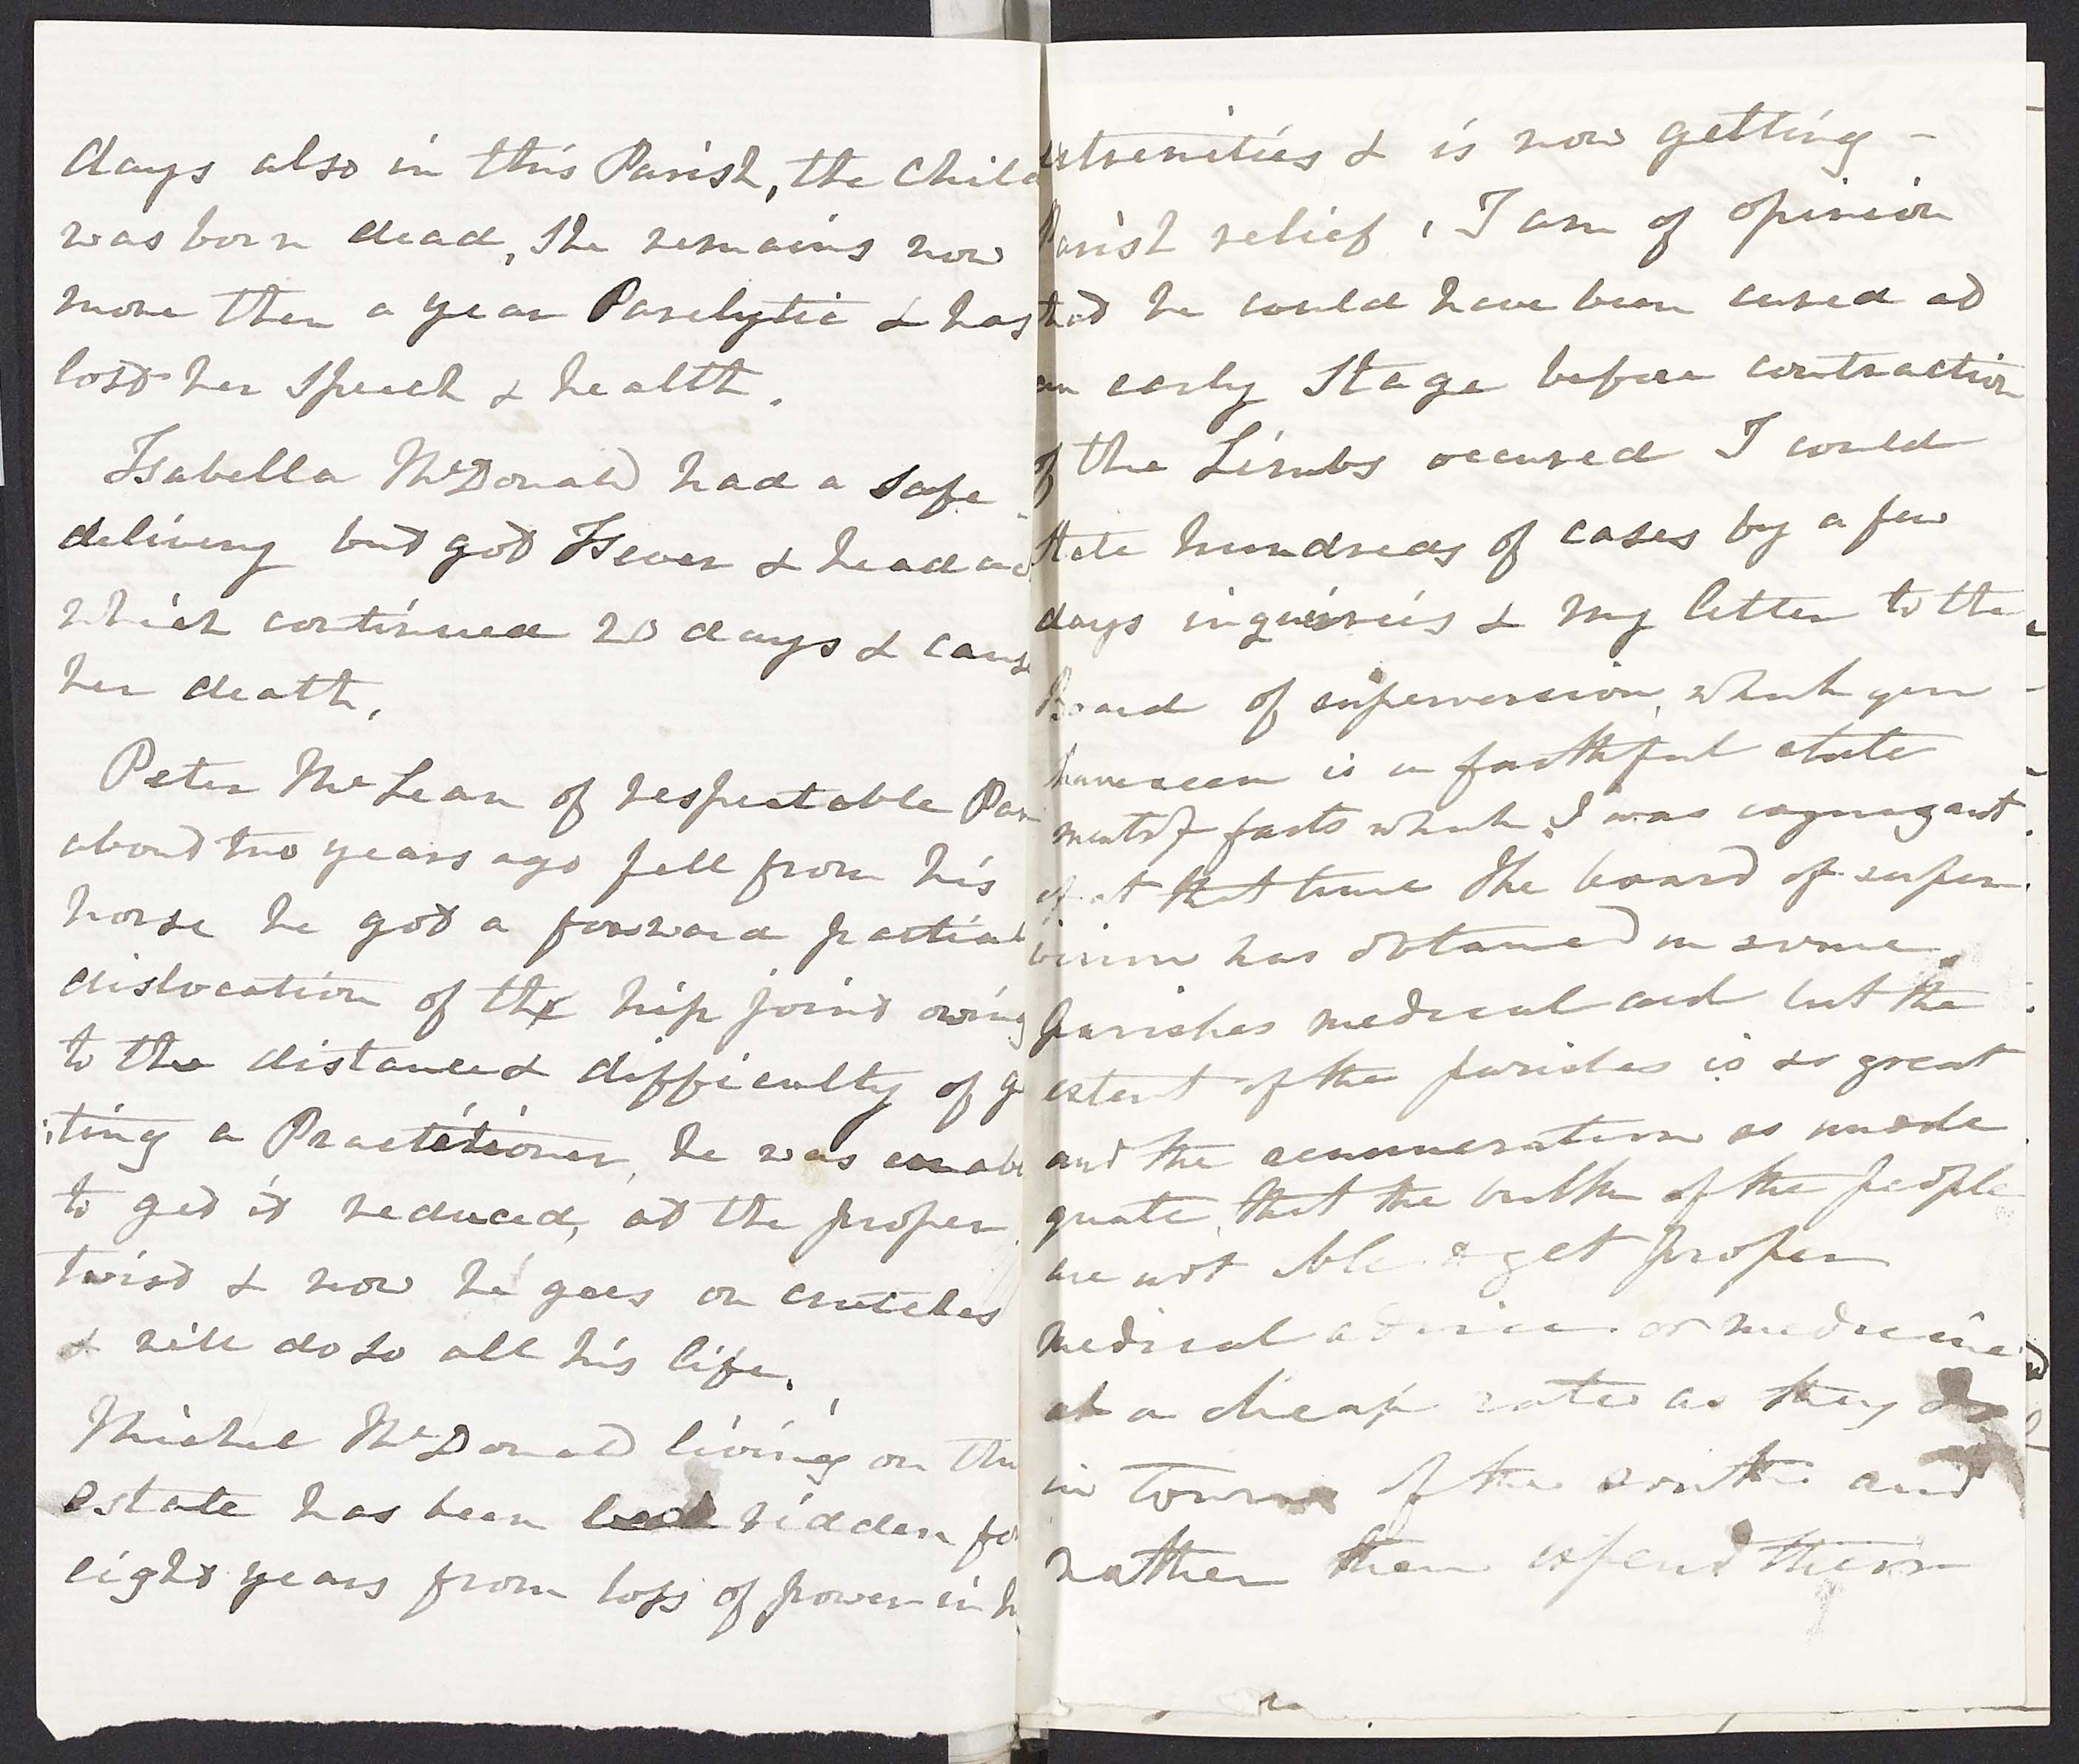 days also in this Parish, the Child
was born dead, She remains now
more then a year Parelytic & has
lost her Speech & health.
Isabella McDonald had a safe
delivery but got Fever & head ac
which continued 20 days & cause
her death,
Peter McLean of respectable Par
about two years ago fell from his
horse he got a forward partial
dislocation of the hip joint owing
to the distance & difficulty of g
ting a Practitioner, he was unabl
to get it reduced, at the proper
twist & now he goes on crutches
& will do so all his life.
Michel McDonald living on this
estate has been bed ridden for
eight years from loss of power in h
extremities & is now getting -
Parish relief, I am of opinion
that he could have been cured at
an early Stage before contraction
of the Limbs occured I could
State hundreds of cases by a few
days inquiries & my letter to the
Board of superversion, which you
have seen is a faithful state
ment of facts which I was cognizant
of at that time The board of super
vision has obtained in some
parishes medical aid but the
extent of the parishes is so great
and the renumeration so inade
quate that the bulk of the people
are not able to get proper
medical advice or medicine
at a cheap rate as they do
in towns of the south and
rather then expend them